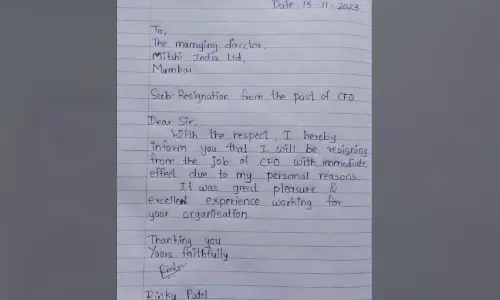 Date 15-11-2023
To,
The managing director,
Mitshi India Ltd,
Mumbai
Sub-Resignation from the post of CFO
Dear Sir,
With the respect, I hereby
inform you that I will be resigning
from the job of CFO with immediate
effect due to my personal reasons.
It was great pleasure &
excellent experience working for
your organisation
Thanking you
Yours faithfully
Rinky Patel